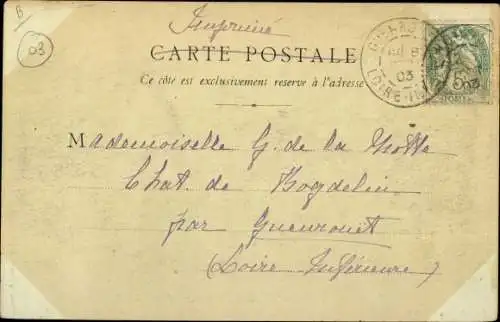 B
03
Imprimé
CARTE POSTALE
Ce côté est exclusivement reservé à l'adresse
03
5c
Mademoiselle G. de la Motte
Chat. de Bogdelin
par Guenrouet
(Loire Inférieure)